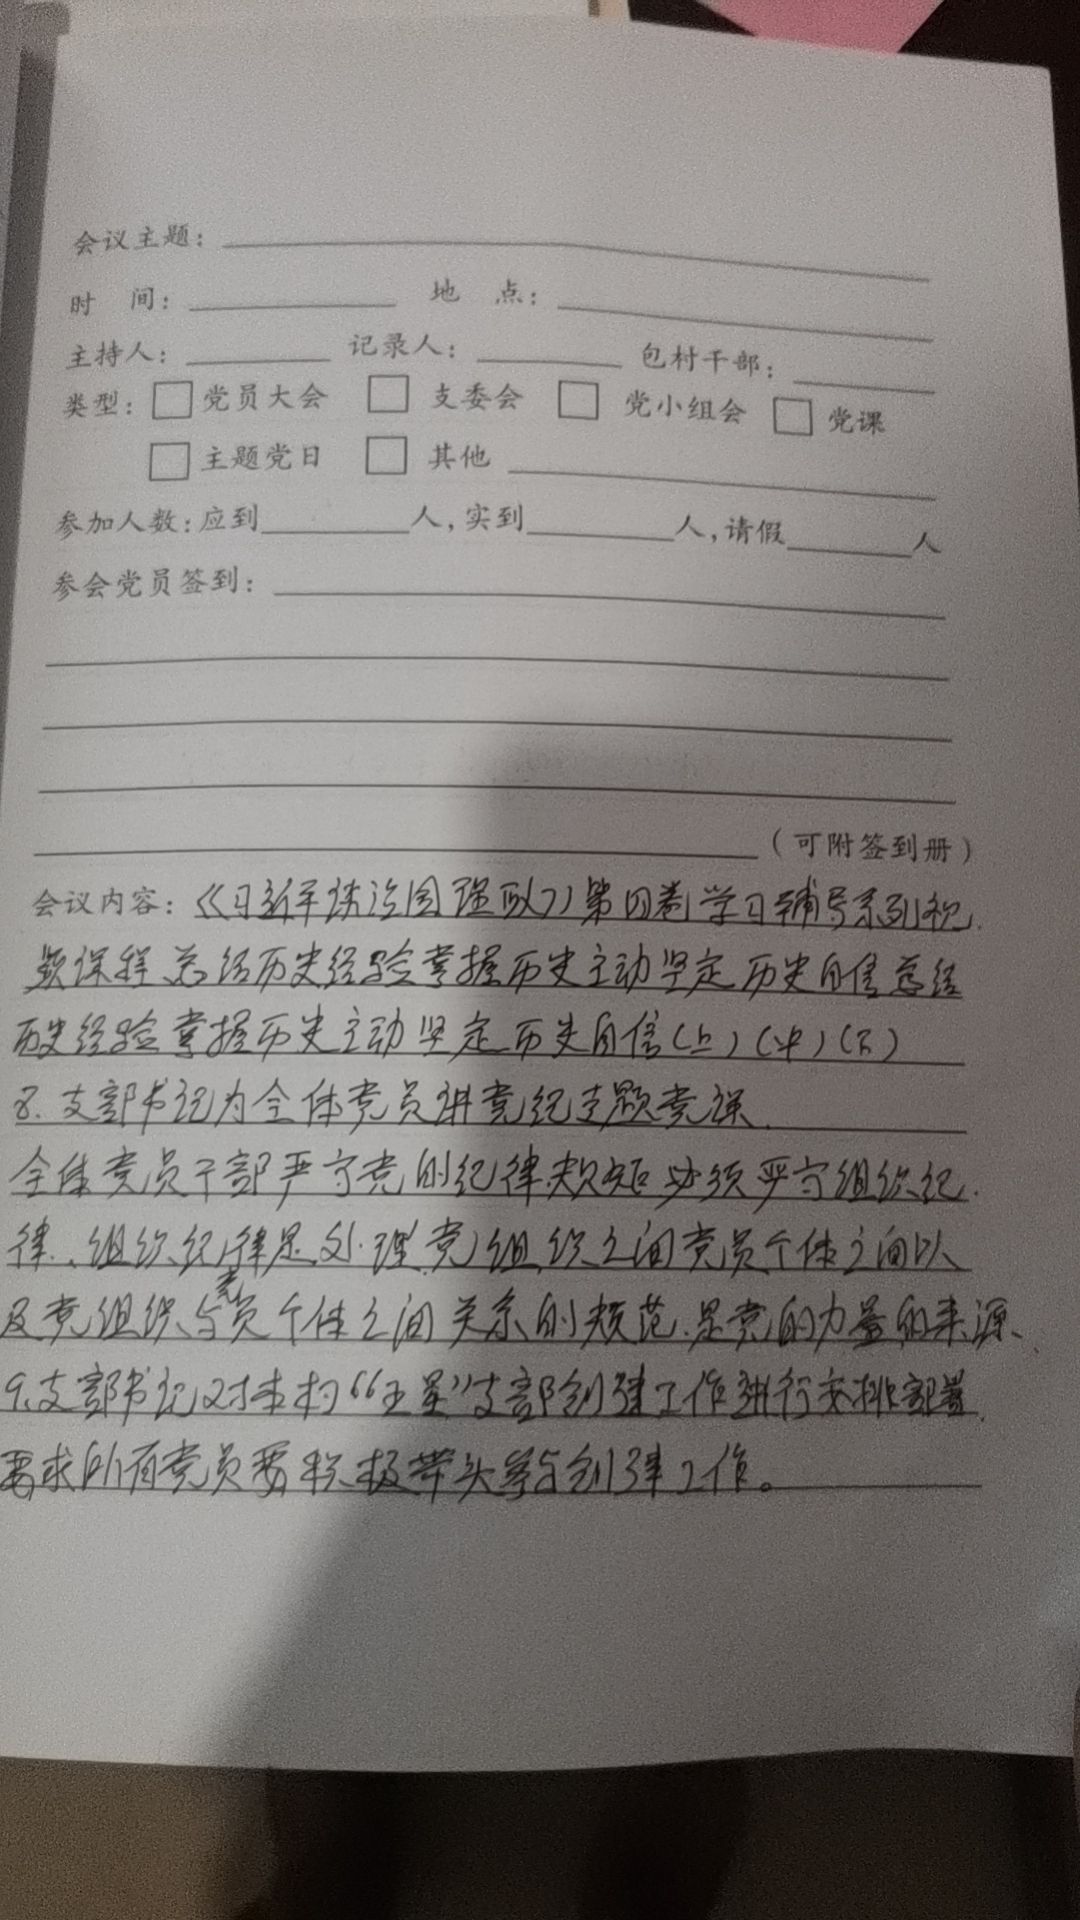 会议主题:
时 间: 地 点:
主持人: 记录人: 包村干部:
类型: □党员大会 □支委会 □党小组会 □党课
□主题党日 □其他
参加人数:应到 人,实到 人,请假 人
参会党员签到:
(可附签到册)
会议内容:《习近平谈治国理政》第四卷学习辅导系列视
频课程总结历史经验掌握历史主动坚定历史自信总结
历史经验掌握历史主动坚定历史自信(上)(中)(下)
8.支部书记为全体党员讲党纪主题党课.
全体党员干部严守党的纪律规矩必须严守组织纪
律.组织纪律是处理党组织之间党员个体之间以
及党组织与党员个体之间关系的规范.是党的力量的来源、
9.支部书记对本村“五星”支部创建工作进行安排部署.
要求所有党员要积极带头参与创建工作。